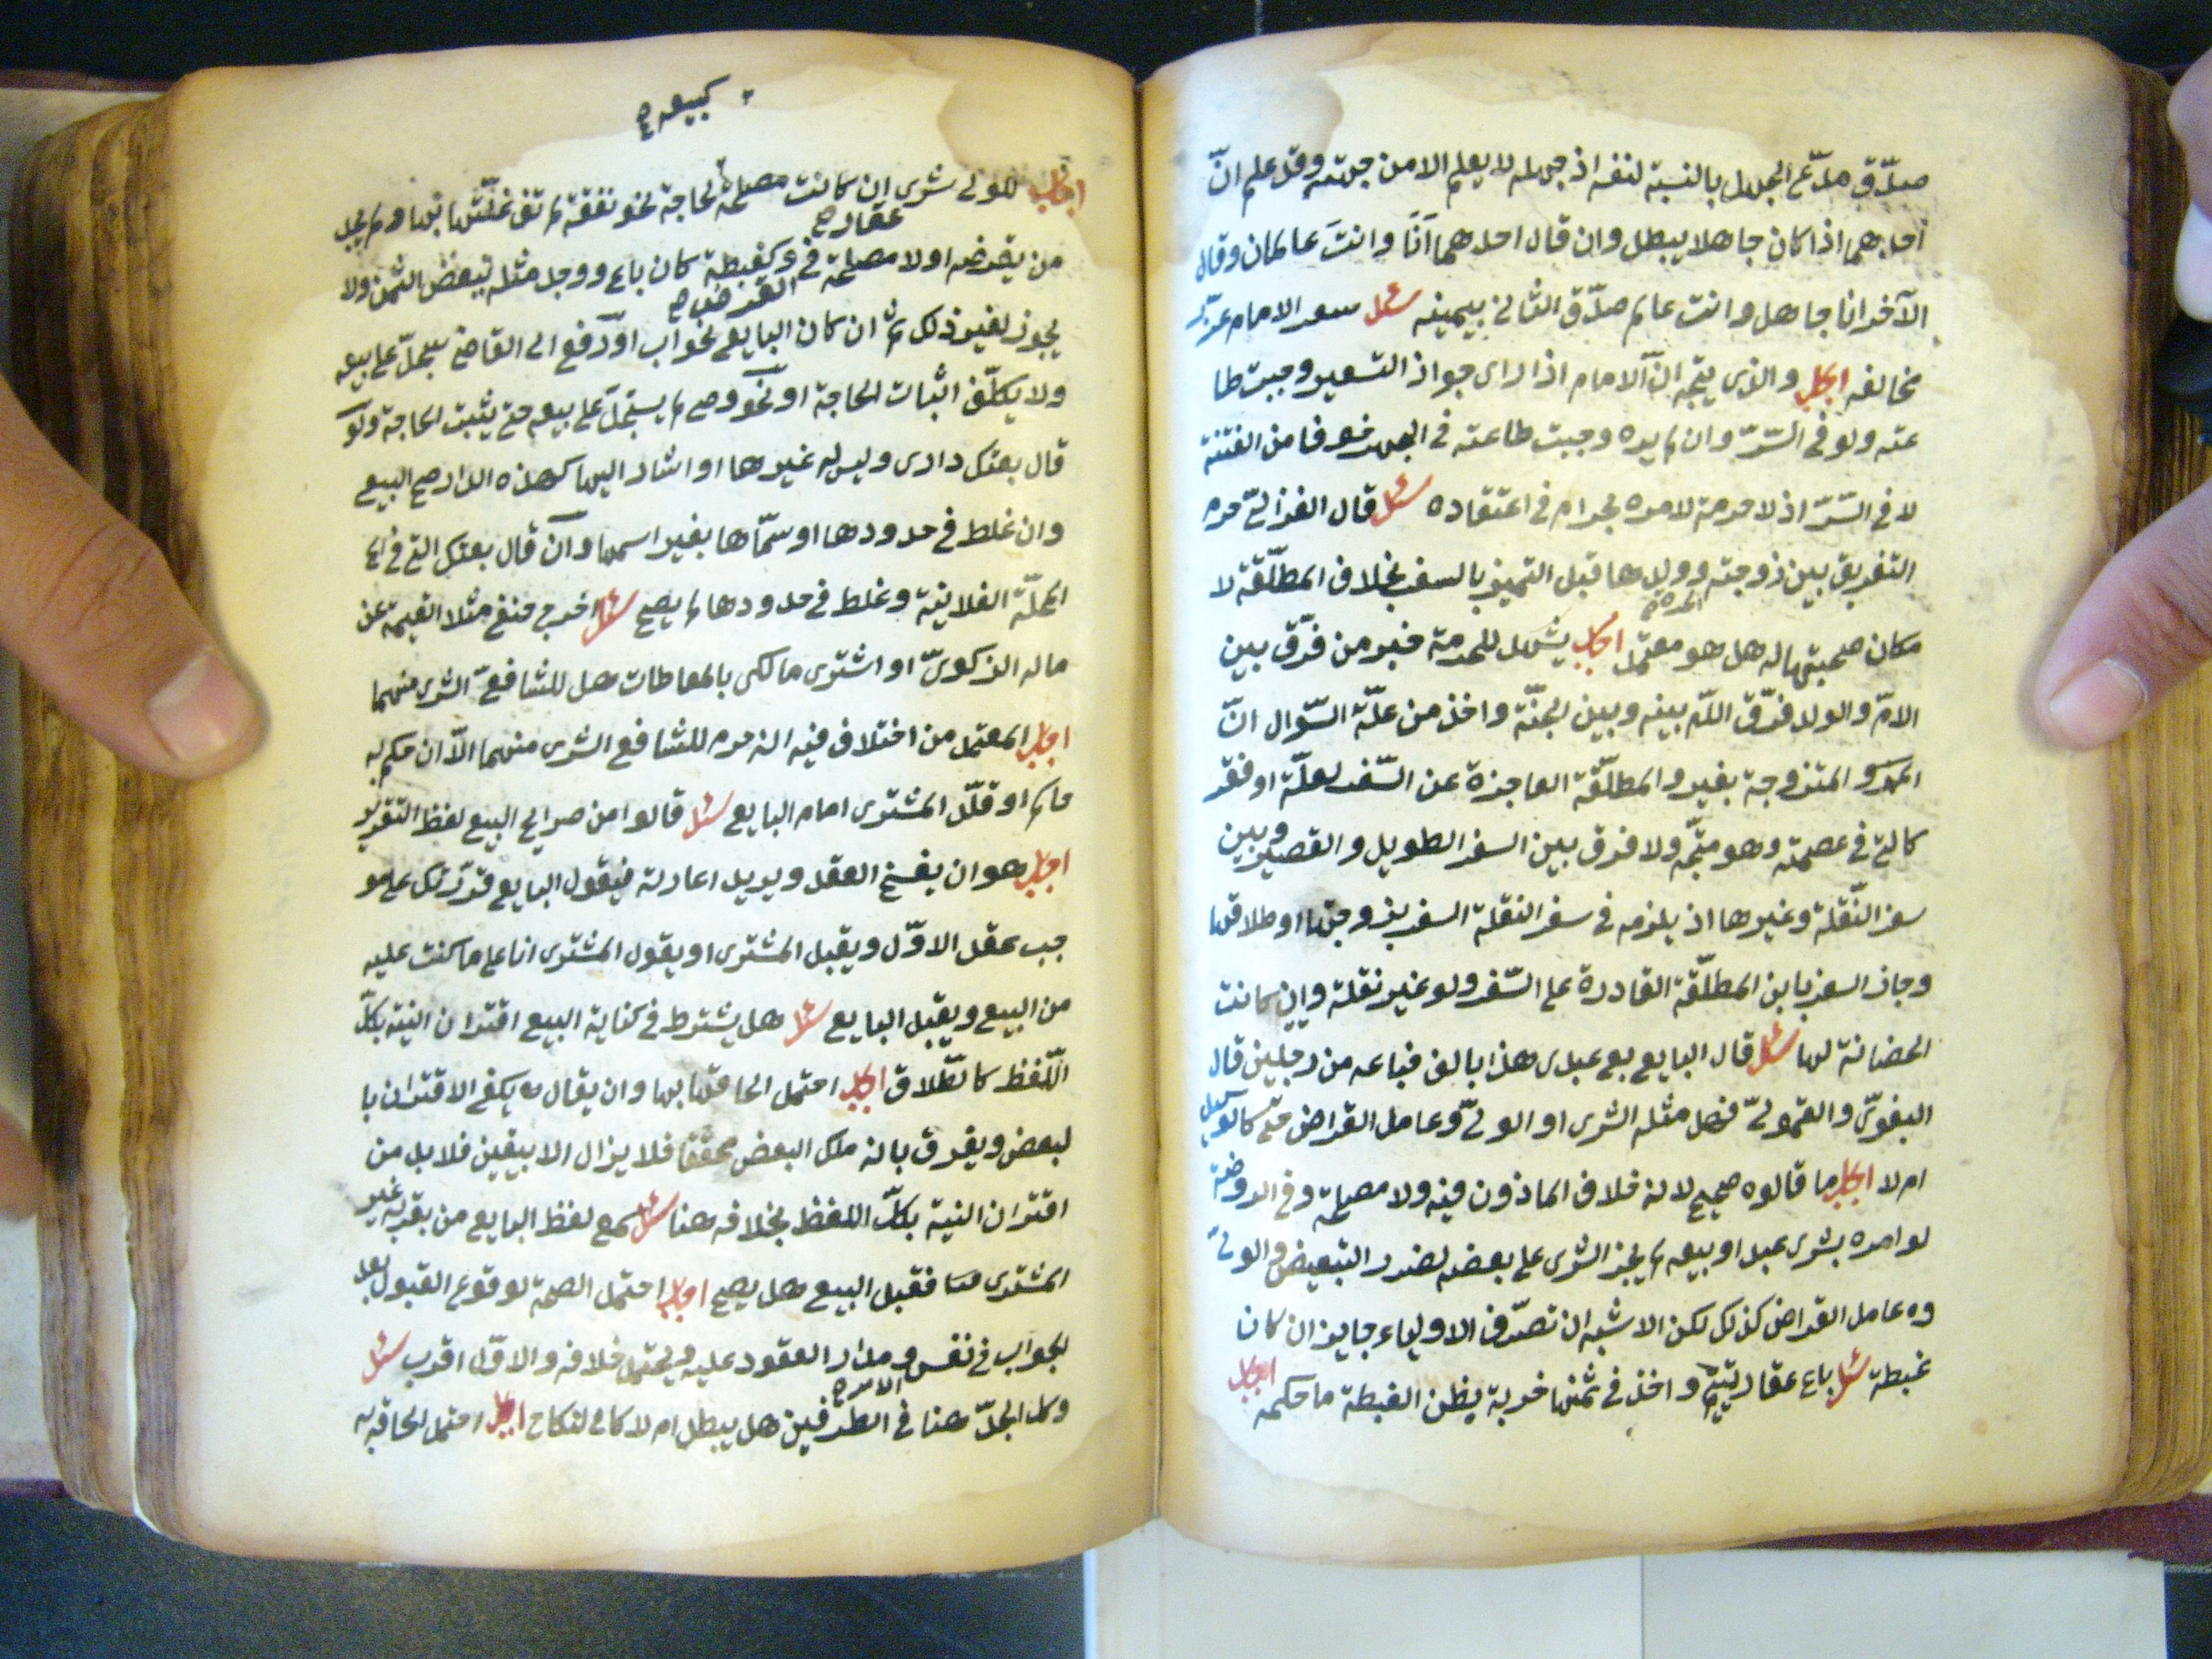 صدّق مدّعي الجهل بالنسبة لنفسه اذ جهله لا يعلم الا من جهته وقد علم انّ
احدهما اذا كان جاهلا يبطل وان قال احدهما انا وانت عالمان وقال
الآخر انا جاهل وانت عالم صدّق الثاني بيمينه سئل سعر الامام عزّر
مخالفه اجاب والذى يتجه انّ الامام اذا راى جواز التسعير وجبت طا
عته ولو في السّرّ وان لم يره وجبت طاعته في الجهر خوفا من الفتنة
لا في السّرّ اذ لا حرمة لامره بحرام في اعتقاده سئل قال الغزالي حرم
التفريق بين زوجته وولدها قبل التميز بالسفر بخلاف المطلّقة لا
مكان صحبتها له هل هو معتمد اجاب يشهد للحرمة خبر من فرّق بين
الامّ والولد فرّق اللّه بينه وبين الجنّة واخذ من علّة السّوال انّ
المتزوجة بغير والمطلّقة العاجزة عن السّفر لعلّة او فقر
كالتي في عصمته وهو متّجه ولا فرق بين السفر الطويل والقصير وبين
سفر النّقلة وغيرها اذ يلزمه في سفر النقلة السفر بزوجتها او طلاقها
وجاز السفر بابن المطلّقة القادرة على السّفر ولو غير نقلة وان كانت
الحضانة لها سئل قال البايع بع عبدى هذا بالف فباعه من رجلين قال
البغوىّ والقمولىّ فهل مثله الشرى او الولىّ وعامل القراض كالوكيل
ام لا اجاب ما قالوه صحيح لانه خلاف الماذون فيه ولا مصلحة وفي الروضة
لو امره بشرى عبد او بيعه لم يجز الشرى على بعضه لضرر التبعيض والولىّ
وعامل القراض كذلك لكن الاشبه ان تصرّف الاولياء جايز ان كان
غبطة سئل باع عقار يتيم واخذ في ثمنها خربة يظن الغبطة ما حكمه اجاب
كبيعه صح
اجاب للولي شرى ان كانت مصلحة لحاجة نحو نفقة لم تف غلّتها بها ولم يجد
عقار صح
من يقرضه او لا مصلحة في وكغبطة كان باع ووجد مثله ببعض الثمن ولا
القرض صح
يجوز لغير ذلك ثم ان كان البايع نحو اب او رفع الى القاضي سجّل على بيعه
ولا يكلّف اثبات الحاجة او نحو وصي لم يسجّل على بيعه حتى يثبت الحاجة ولو
قال بعتك دارى وليس له غيرها او اشار اليها كهذه الدار صح البيع
وان غلط في حدودها او سمّاها بغير اسمها وان قال بعتك التي في
المحلّة الفلانية وغلط في حدودها لم يصح سئل اخرج حنفي مثلا القيمة عن
ماله الزكوىّ او اشترى مالكى بالمعاطات هل للشافعىّ الشرى منهما
اجاب المعتمد من اختلاف فيه انه حرم للشافع الشرى منهما الاّ ان حكم به
حاكم او قلّد المشترى امام البايع سئل قالوا من صرايح البيع لفظ التقرير
اجاب هو ان يفسخ العقد ويريد اعادته فيقول البايع قرّرتك على مو
جب عقد الاوّل ويقبل المشترى او يقول المشترى انا على ما كنت عليه
من البيع ويقبل البايع سئل هل يشترط في كناية البيع اقتران النية بكلّ
اللّفظ كالطّلاق اجاب احتمل الحاقها بها وان يقال يكفي الاقتران با
لبعض ويفرق بانه ملك البعض محققا فلا يزال الا بيقين فلا بد من
اقتران النية بكلّ اللفظ بخلافه هنا سئل سمع لفظ البايع من بقربه غير
المشترى فقبل البيع هل يصح اجاب احتمل الصحة لوقوع القبول بعد
الجواب في نفس ومدار العقود عليه ويحتمل خلافه والاوّل اقرب سئل
الامر صح
وكل الجدّ هنا في الطرفين هل يبطل ام لا كما في النكاح اجاب احتمل الحاقه به